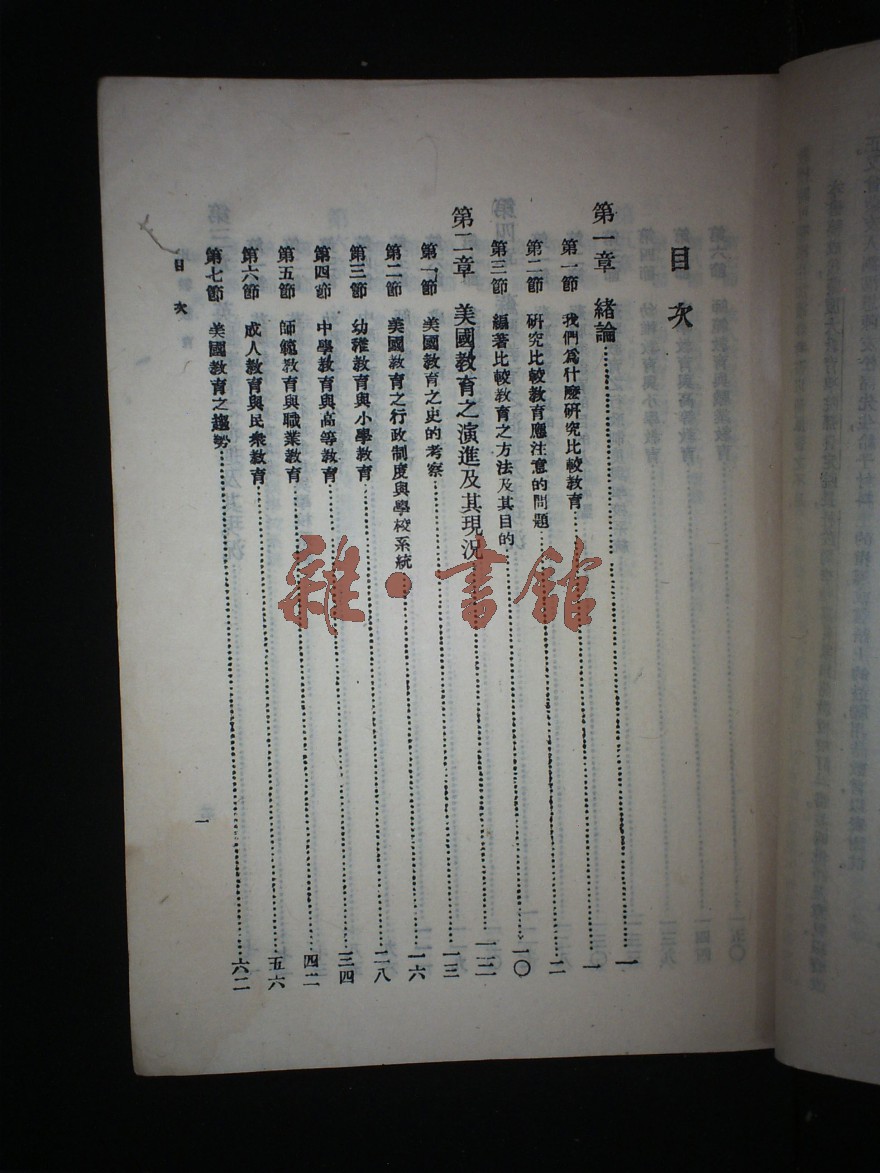 目次
第一章 緒論……一
第一節 我們為什麼研究比較教育……一
第二節 研究比較教育應注意的問題……二
第三節 編著比較教育之方法及其目的……一〇
第二章 美國教育之演進及其現況……一三
第一節 美國教育之史的考察……一三
第二節 美國教育之行政制度與學校系統……一六
第三節 幼稚教育與小學教育……二八
第四節 中學教育與高等教育……三四
第五節 師範教育與職業教育……四二
第六節 成人教育與民衆教育……五六
第七節 美國教育之趨勢……六二
目次
一
雜·書館